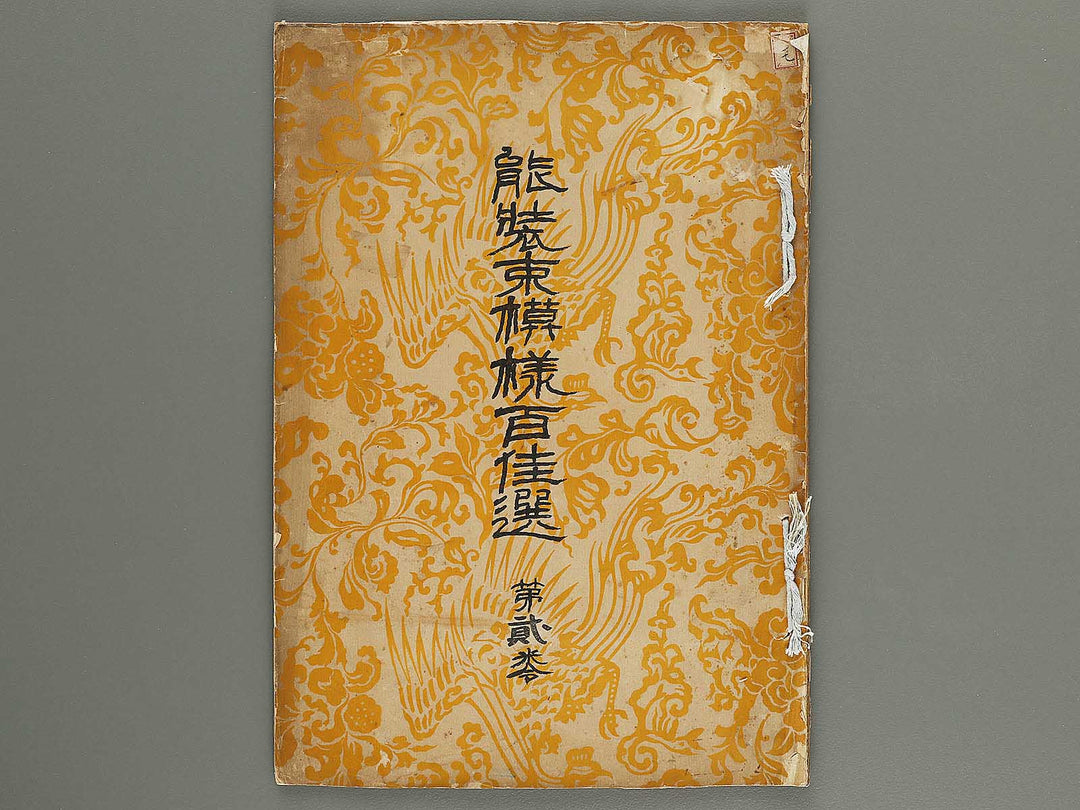 能装束模様百佳選
第貳卷